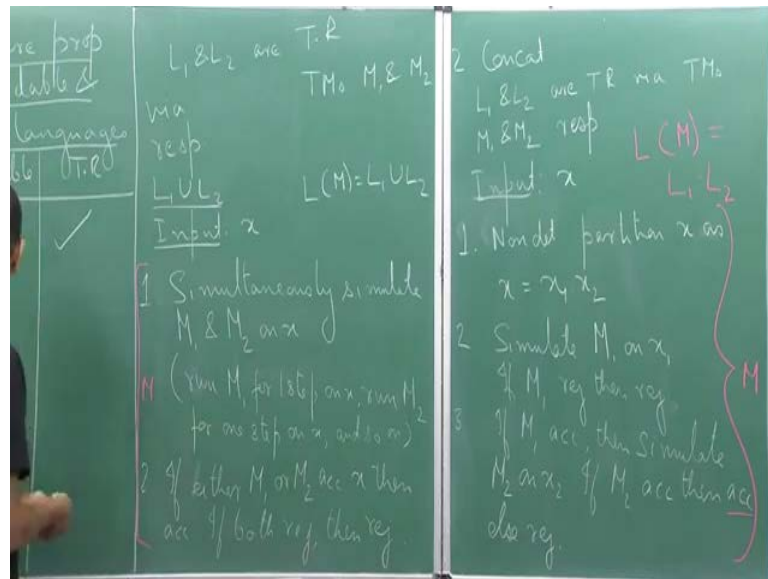 re prop
dable &
languages
T.R
✓
L₁ & L₂ are T.R
TMs M₁ & M₂
via
resp
L₁ ∪ L₂
L(M) = L₁ ∪ L₂
Input: x
1 Simultaneously simulate
M₁ & M₂ on x
(run M₁ for 1 step on x, run M₂
for one step on x, and so on)
2 If either M₁ or M₂ acc x then
acc If both rej, then rej.
M
2 Concat
L₁ & L₂ are TR via TMs
M₁ & M₂ resp
L(M) =
L₁ · L₂
Input: x
1. Nondet partition x as
x = x₁ x₂
2 Simulate M₁ on x₁
If M₁ rej then rej
3 If M₁ acc, then simulate
M₂ on x₂ If M₂ acc then acc
else rej.
M